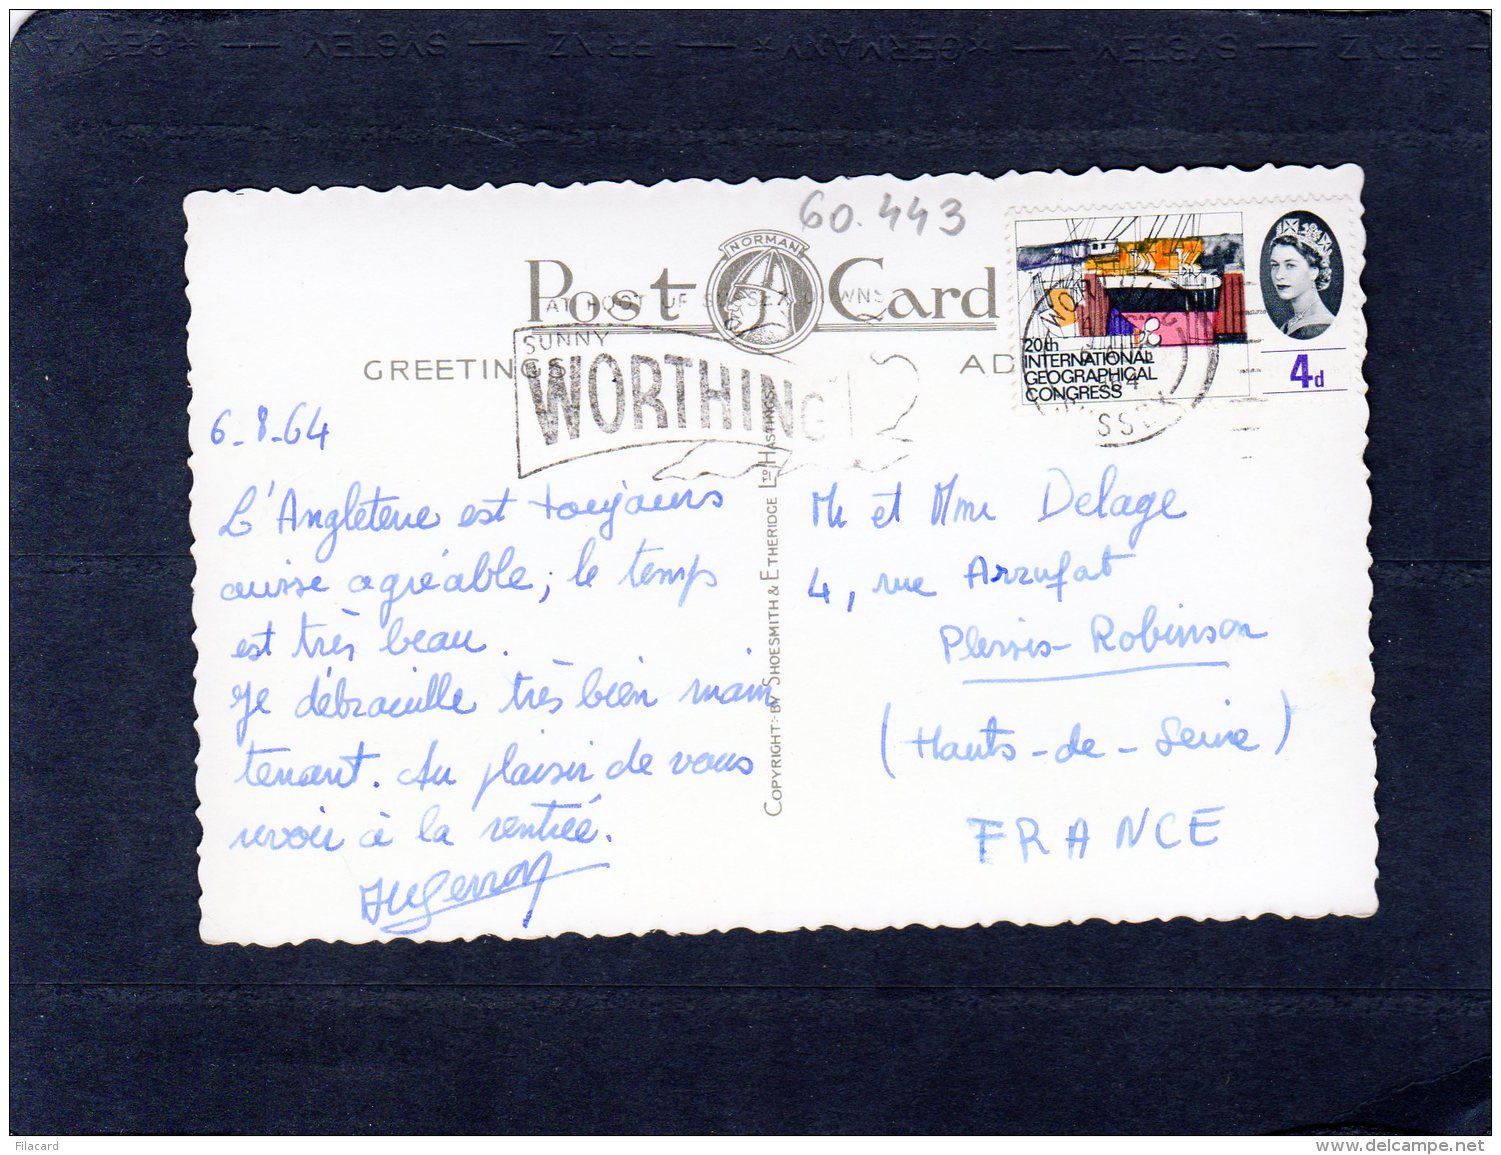 SYSTEM — PRYZ — *GERMANY* — SYSTEM — PRYZ
60.443
NORMAN
Post Card
AT FOOT OF SUSSEX DOWNS
SUNNY
WORTHING
GREETINGS
AD
WORTHING
SUSSEX
20th
INTERNATIONAL
GEOGRAPHICAL
CONGRESS
4d
6-8-64
L'Angleterre est toujours
aussi agréable; le temps
est très beau.
Je débrouille très bien main
tenant. Au plaisir de vous
revoir à la rentrée.
COPYRIGHT:- BY SHOESMITH & ETHERIDGE LTD HASTINGS
Mr et Mme Delage
4, rue Arzufat
Plessis-Robinson
(Hauts-de-Seine)
FRANCE
Filacard
www.delcampe.net